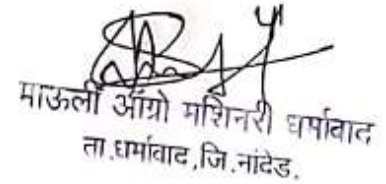 माऊली ॲग्रो मशिनरी धर्माबाद
ता.धर्माबाद,जि.नांदेड.